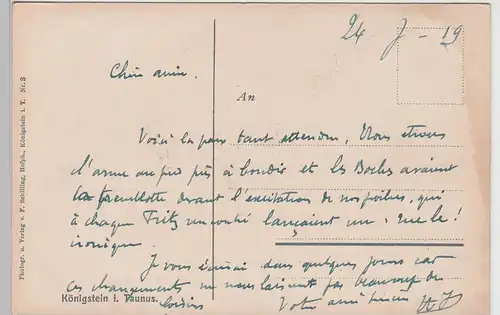 24-7-19
Chère amie.
An
Voici la paix tant attendue, Nous étions
l'arme au pied prêts à bondir et les Boches avaient
la tremblotte devant l'excitation de nos poilus, qui
à chaque Fritz rencontré lançaient un :
ironique.
Je vous écrirai dans quelques jours car
ces changements ne nous laissent pas beaucoup de
loisirs
Votre ami
Königstein i. Taunus.
Photogr. u. Verlag v. F. Schilling, Hofph., Königstein i. T. Nr. 3